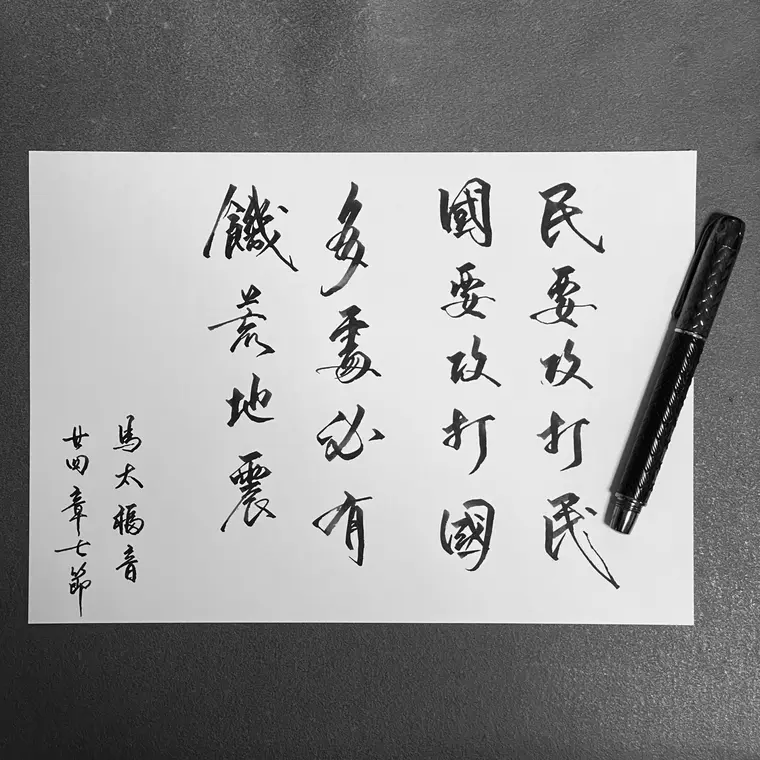 民要攻打民
國要攻打國
多處必有
饑荒地震
馬太福音
廿四章七節